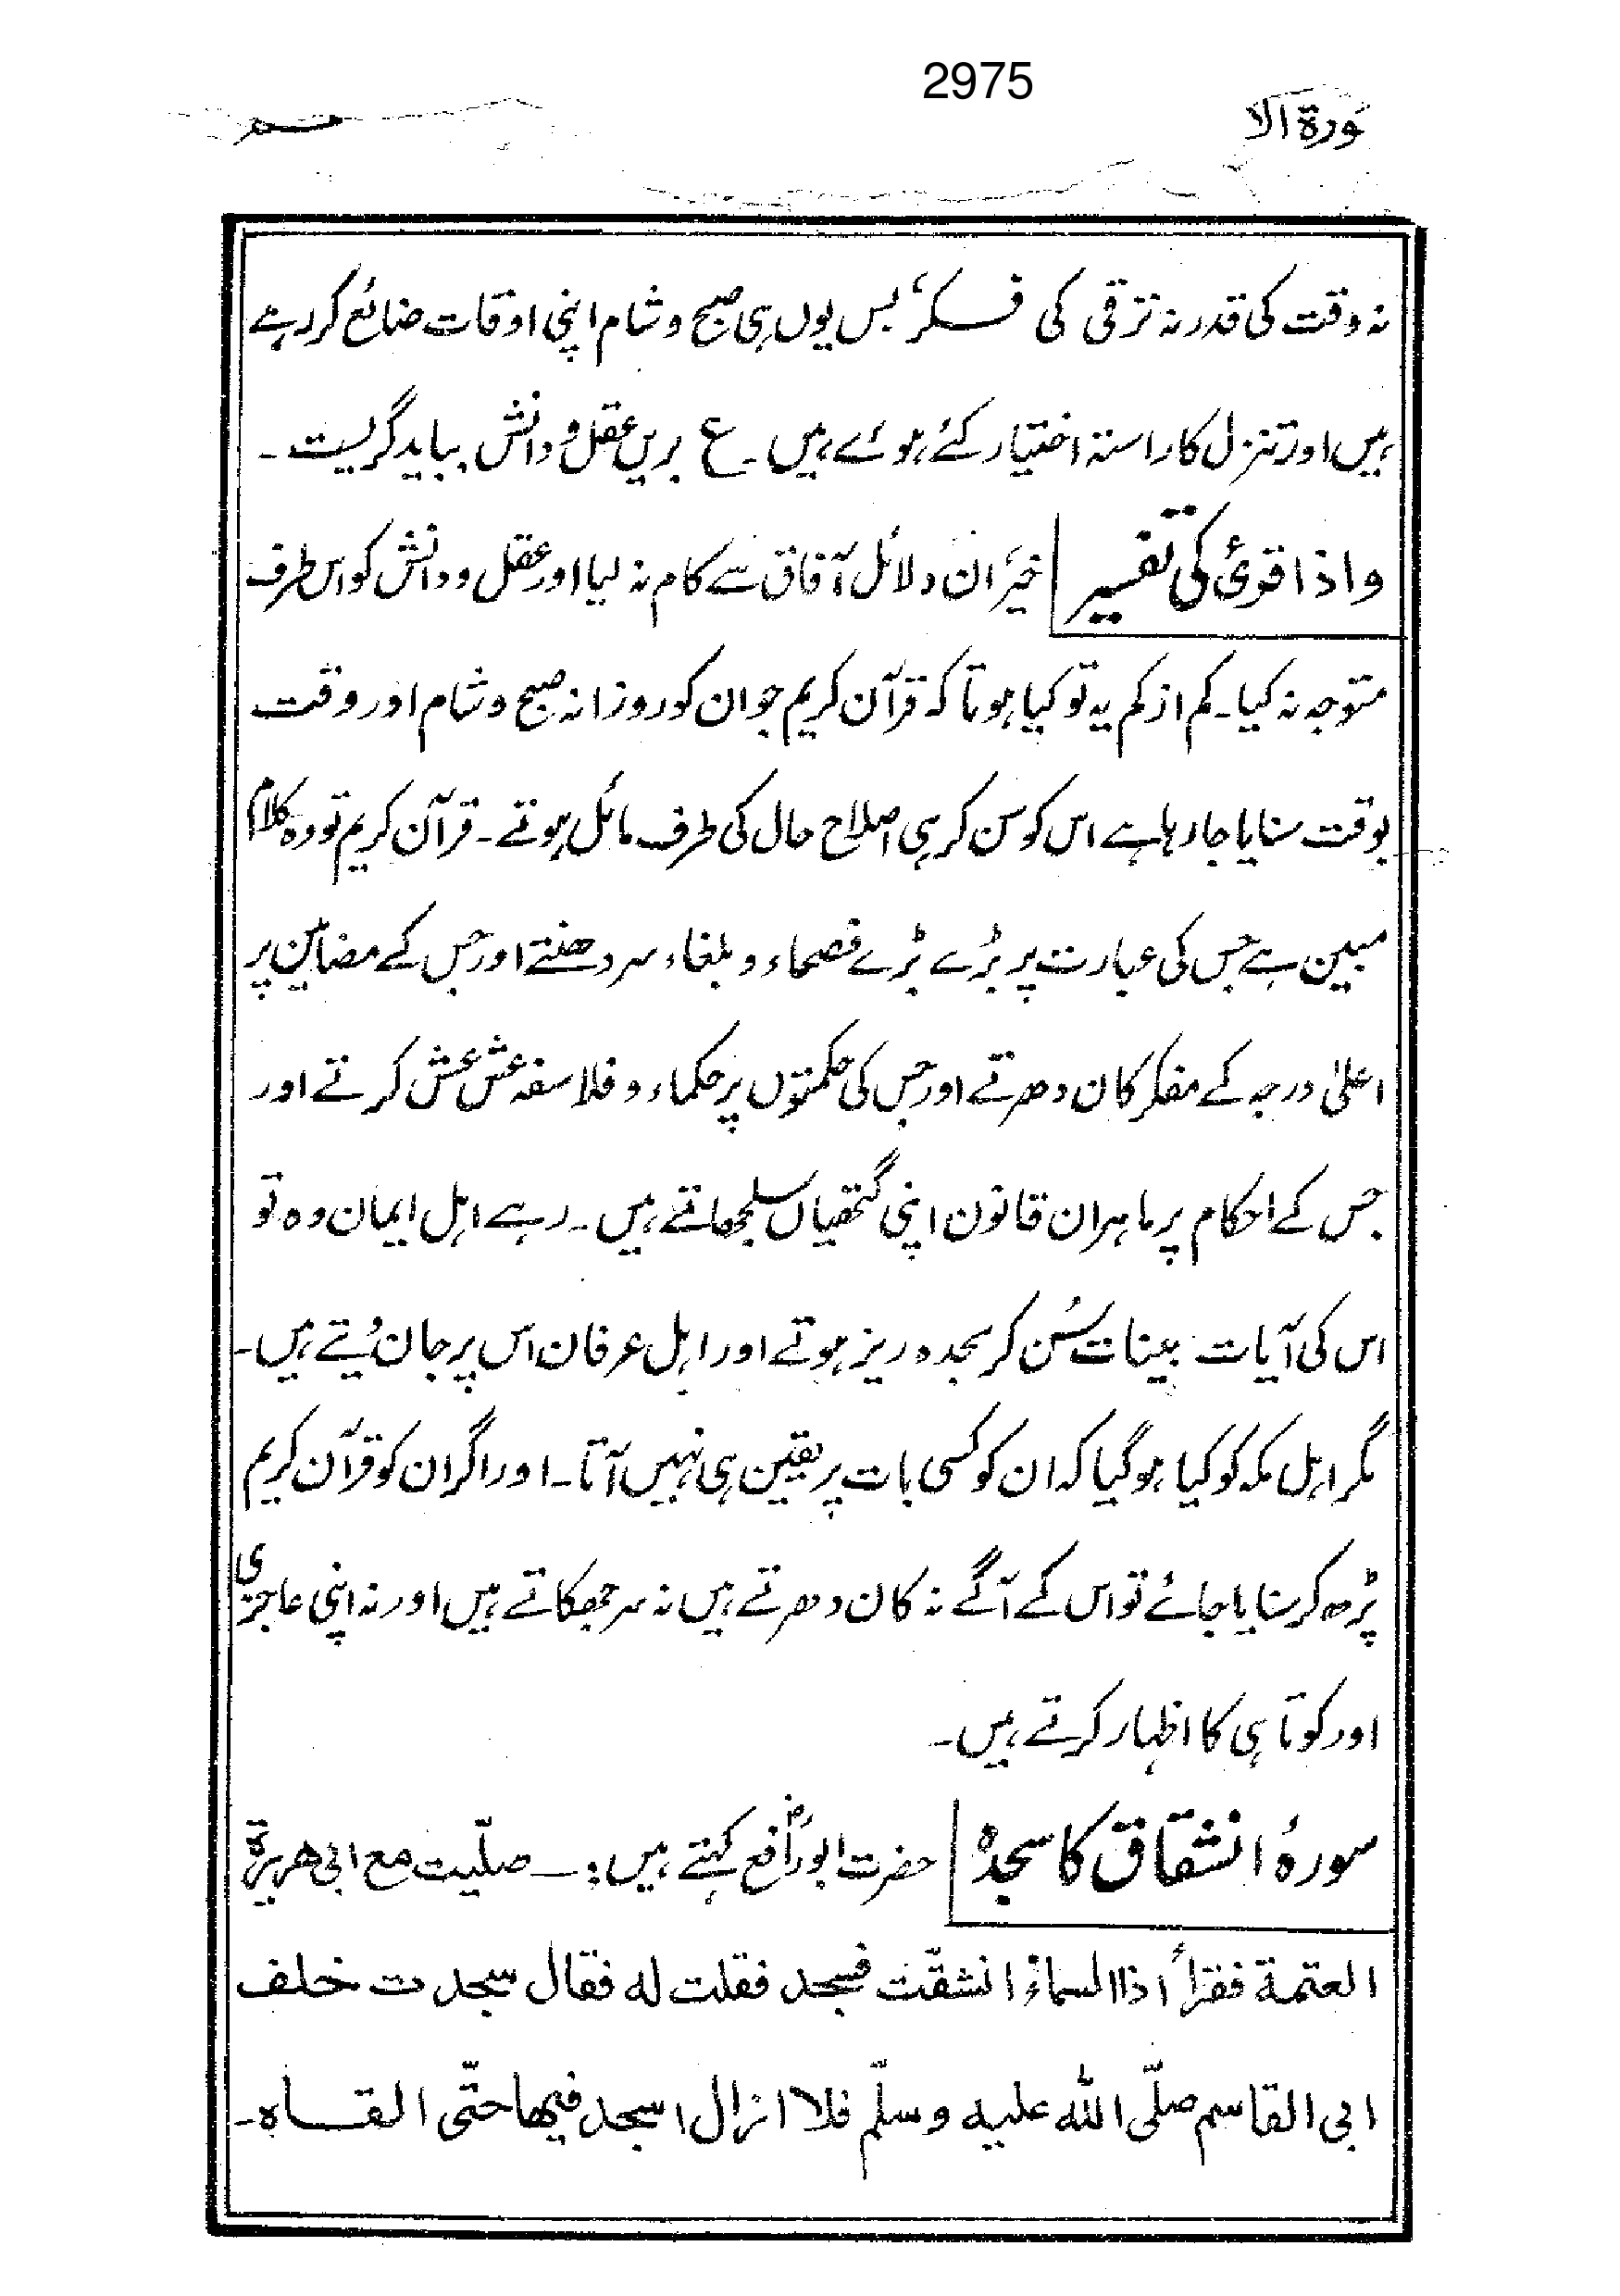 2975
ورۃ الا
نہ وقت کی قدر نہ ترقی کی فکر، بس یوں ہی صبح و شام اپنی اوقات ضائع کر رہے
ہیں اور تنزل کا راستہ اختیار کئے ہوئے ہیں۔ ع بریں عقل و دانش بباید گریست۔
واذا قرئ کی تفسیر خیر ان دلائل آفاق سے کام نہ لیا اور عقل و دانش کو اس طرف
متوجہ نہ کیا۔ کم از کم یہ تو کیا ہوتا کہ قرآن کریم جو ان کو روزانہ صبح و شام اور وقت
بوقت سنایا جا رہا ہے اس کو سن کر ہی اصلاح حال کی طرف مائل ہوتے۔ قرآن کریم تو وہ کلام
مبین ہے جس کی عبارت پر بڑے بڑے فصحاء و بلغاء سر دھنتے اور جس کے مضامین پر
اعلیٰ درجہ کے مفکر کان دھرتے اور جس کی حکمتوں پر حکماء و فلاسفہ عش عش کرتے اور
جس کے احکام پر ماہران قانون اپنی گتھیاں سلجھاتے ہیں۔ رہے اہل ایمان وہ تو
اس کی آیات بینات سُن کر سجدہ ریز ہوتے اور اہل عرفان اس پر جان دیتے ہیں۔
مگر اہل مکہ کو کیا ہو گیا کہ ان کو کسی بات پر یقین ہی نہیں آتا۔ اور اگر ان کو قرآن کریم
پڑھ کر سنایا جائے تو اس کے آگے نہ کان دھرتے ہیں نہ سر جھکاتے ہیں اور نہ اپنی عاجزی
اور کوتاہی کا اظہار کرتے ہیں۔
سورۂ انشقاق کا سجدہ حضرت ابورافعؓ کہتے ہیں :۔ صلّیت مع ابی ھریرۃ
العتمۃ فقرأ اذا السماء انشقّت فسجد فقلت له فقال سجدت خلف
ابی القاسم صلّی اللّٰه علیه وسلّم فلا ازال اسجد فیھا حتّی القاہ۔